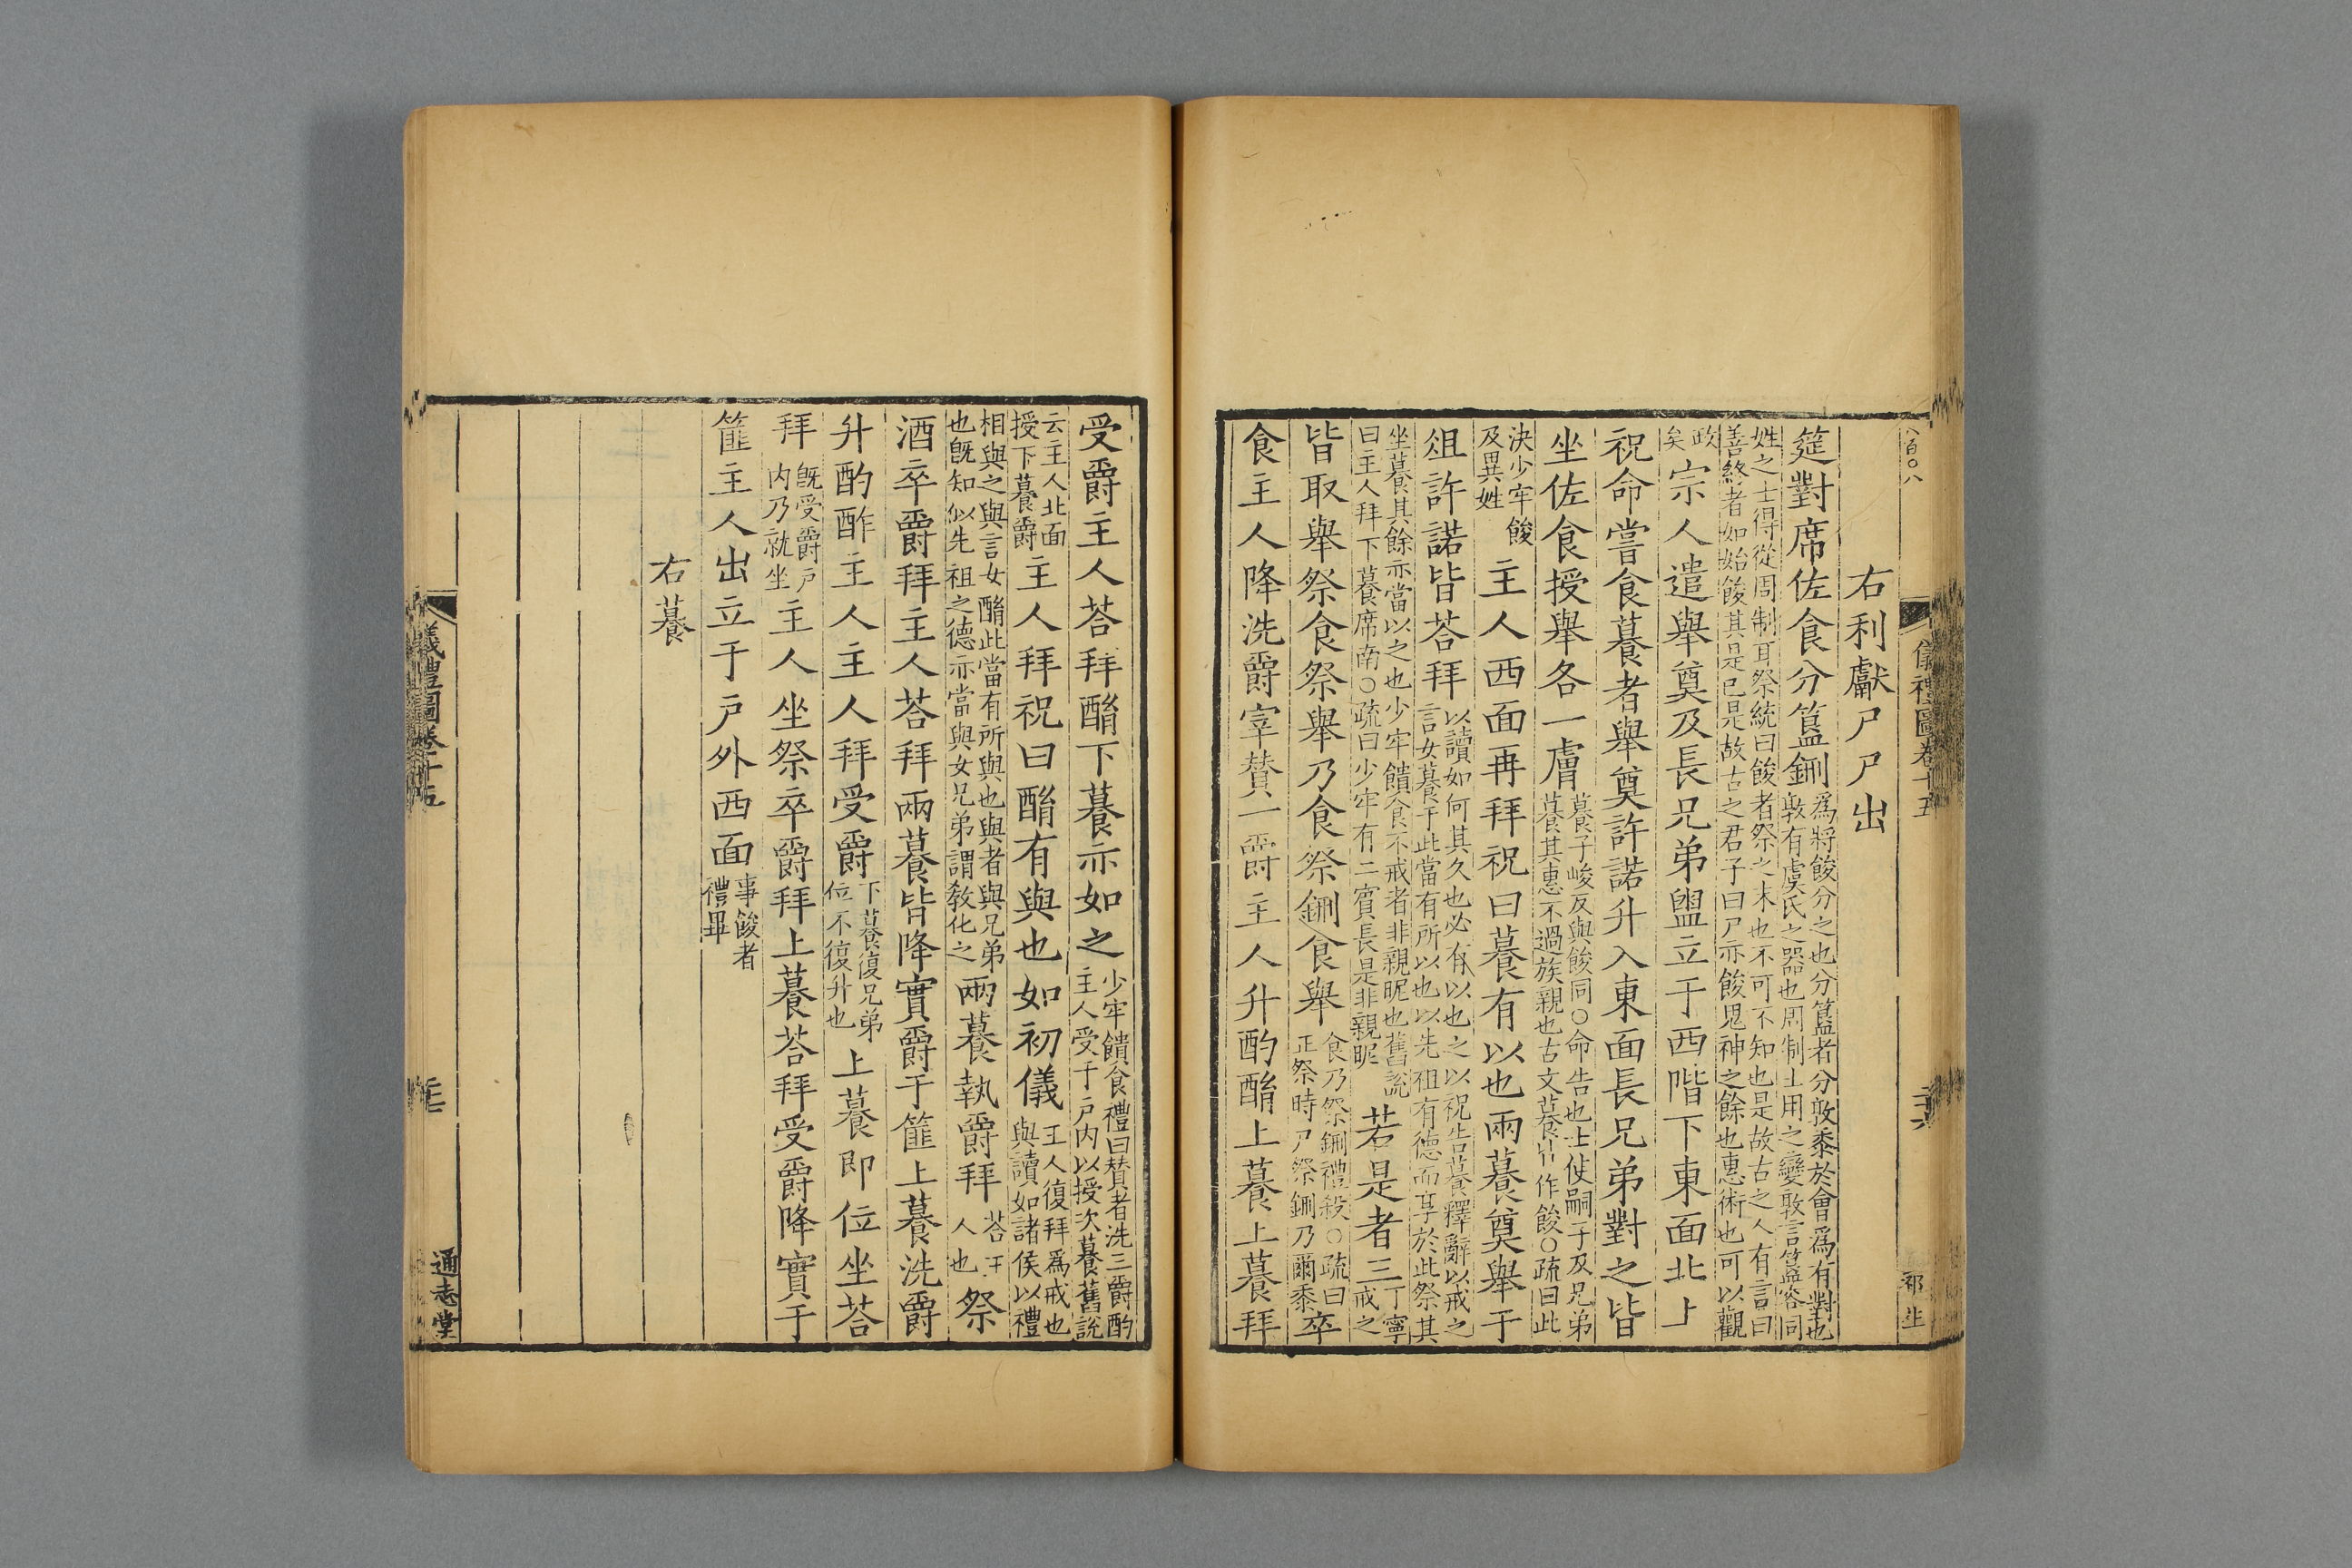 儀禮圖卷十五
右利獻尸尸出
筵對席佐食分簋鉶爲將餕分之也分簋者分敦黍於會爲有對也敦有虞氏之器也周制士用之變敦言簋容同
姓之士得從周制耳祭統曰餕者祭之末也不可不知也是故古之人有言曰善終者如始餕其是已是故古之君子曰尸亦餕鬼神之餘也惠術也可以觀
政矣宗人遣舉奠及長兄弟盥立于西階下東面北上
祝命嘗食䉵者舉奠許諾升入東面長兄弟對之皆
坐佐食授舉各一膚䉵子峻反與餕同○命告也士使嗣子及兄弟䉵其惠不過族親也古文䉵皆作餕○疏曰此
決少牢餕及異姓主人西面再拜祝曰䉵有以也兩䉵奠舉于
俎許諾皆荅拜以讀如何其久也必有以也之以祝告䉵釋辭以戒之言女䉵于此當有所以也以先祖有德而享於此祭其
坐䉵其餘亦當以之也少牢饋食不戒者非親昵也舊說曰主人拜下䉵席南○疏曰少牢有二賓長是非親昵若是者三丁寧戒之
皆取舉祭食祭舉乃食祭鉶食舉食乃祭鉶禮殺○疏曰正祭時尸祭鉶乃爾黍卒
食主人降洗爵宰贊一爵主人升酌酳上䉵上䉵拜
受爵主人荅拜酳下䉵亦如之少牢饋食禮曰贊者洗三爵酌主人受于戶内以授次䉵舊說
云主人北面授下䉵爵主人拜祝曰酳有與也如初儀主人復拜爲戒也與讀如諸侯以禮
相與之與言女酳此當有所與也與者與兄弟也既知似先祖之德亦當與女兄弟謂教化之兩䉵執爵拜荅主人也祭
酒卒爵拜主人荅拜兩䉵皆降實爵于篚上䉵洗爵
升酌酢主人主人拜受爵下䉵復兄弟位不復升也上䉵即位坐荅
拜既受爵戶内乃就坐主人坐祭卒爵拜上䉵荅拜受爵降實于
篚主人出立于戶外西面事餕者禮畢
右䉵
儀禮圖卷十五
通志堂